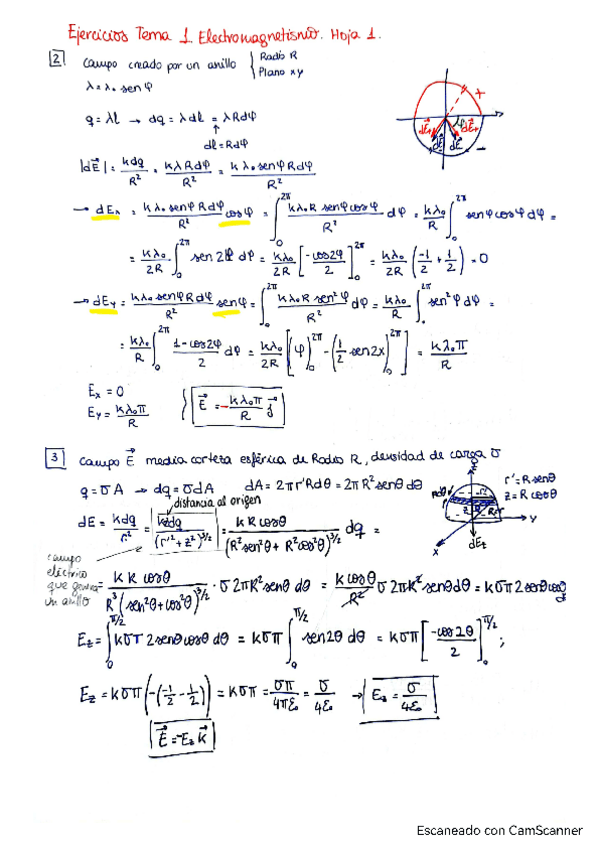 Ejercicios Tema 1. Electromagnetismo. Hoja 1.
2 campo creado por un anillo { Radio R
Plano xy
λ = λ₀ sen φ
q = λl → dq = λ dl = λRdφ
↑
dl = Rdφ
|dE⃗| = kdq/R² = kλRdφ/R² = kλ₀ senφ Rdφ/R²
→ dEx = kλ₀ senφ Rdφ/R² cosφ = ∫₀^2π kλ₀R senφcosφ/R² dφ = kλ₀/R ∫₀^2π senφcosφdφ =
= kλ₀/2R ∫₀^2π sen2φ dφ = kλ₀/2R [-cos2φ/2]₀^2π = kλ₀/2R (-1/2 + 1/2) = 0
→ dEy = kλ₀ senφ Rdφ/R² senφ = ∫₀^2π kλ₀R sen²φ/R² dφ = kλ₀/R ∫₀^2π sen²φ dφ =
= kλ₀/R ∫₀^2π 1-cos2φ/2 dφ = kλ₀/2R [(φ)₀^2π - (1/2 sen2x)₀^2π] = kλ₀π/R
Ex = 0
Ey = kλ₀π/R } E⃗ = -kλ₀π/R j⃗
3 campo E⃗ media corteza esférica de Radio R, densidad de carga σ
q = σA → dq = σdA dA = 2πr'Rdθ = 2πR² senθ dθ
r' = R senθ
z = R cosθ
distancia al origen
dE = kdq/r² = kzdq/(r'² + z²)^3/2 = kR cosθ/(R²sen²θ + R²cos²θ)^3/2 dq =
campo eléctrico que genera un anillo
= kR cosθ/R³(sen²θ + cos²θ)^3/2 · σ2πR² senθ dθ = k cosθ/R² σ2πR² senθdθ = kσπ2senθcosθ
Ez = ∫₀^π/2 kσπ 2senθcosθ dθ = kσπ ∫₀^π/2 sen2θ dθ = kσπ [-cos2θ/2]₀^π/2 ;
Ez = kσπ(-(-1/2 - 1/2)) = kσπ = σπ/4πε₀ = σ/4ε₀ → Ez = σ/4ε₀
E⃗ = -Ez k⃗
Escaneado con CamScanner